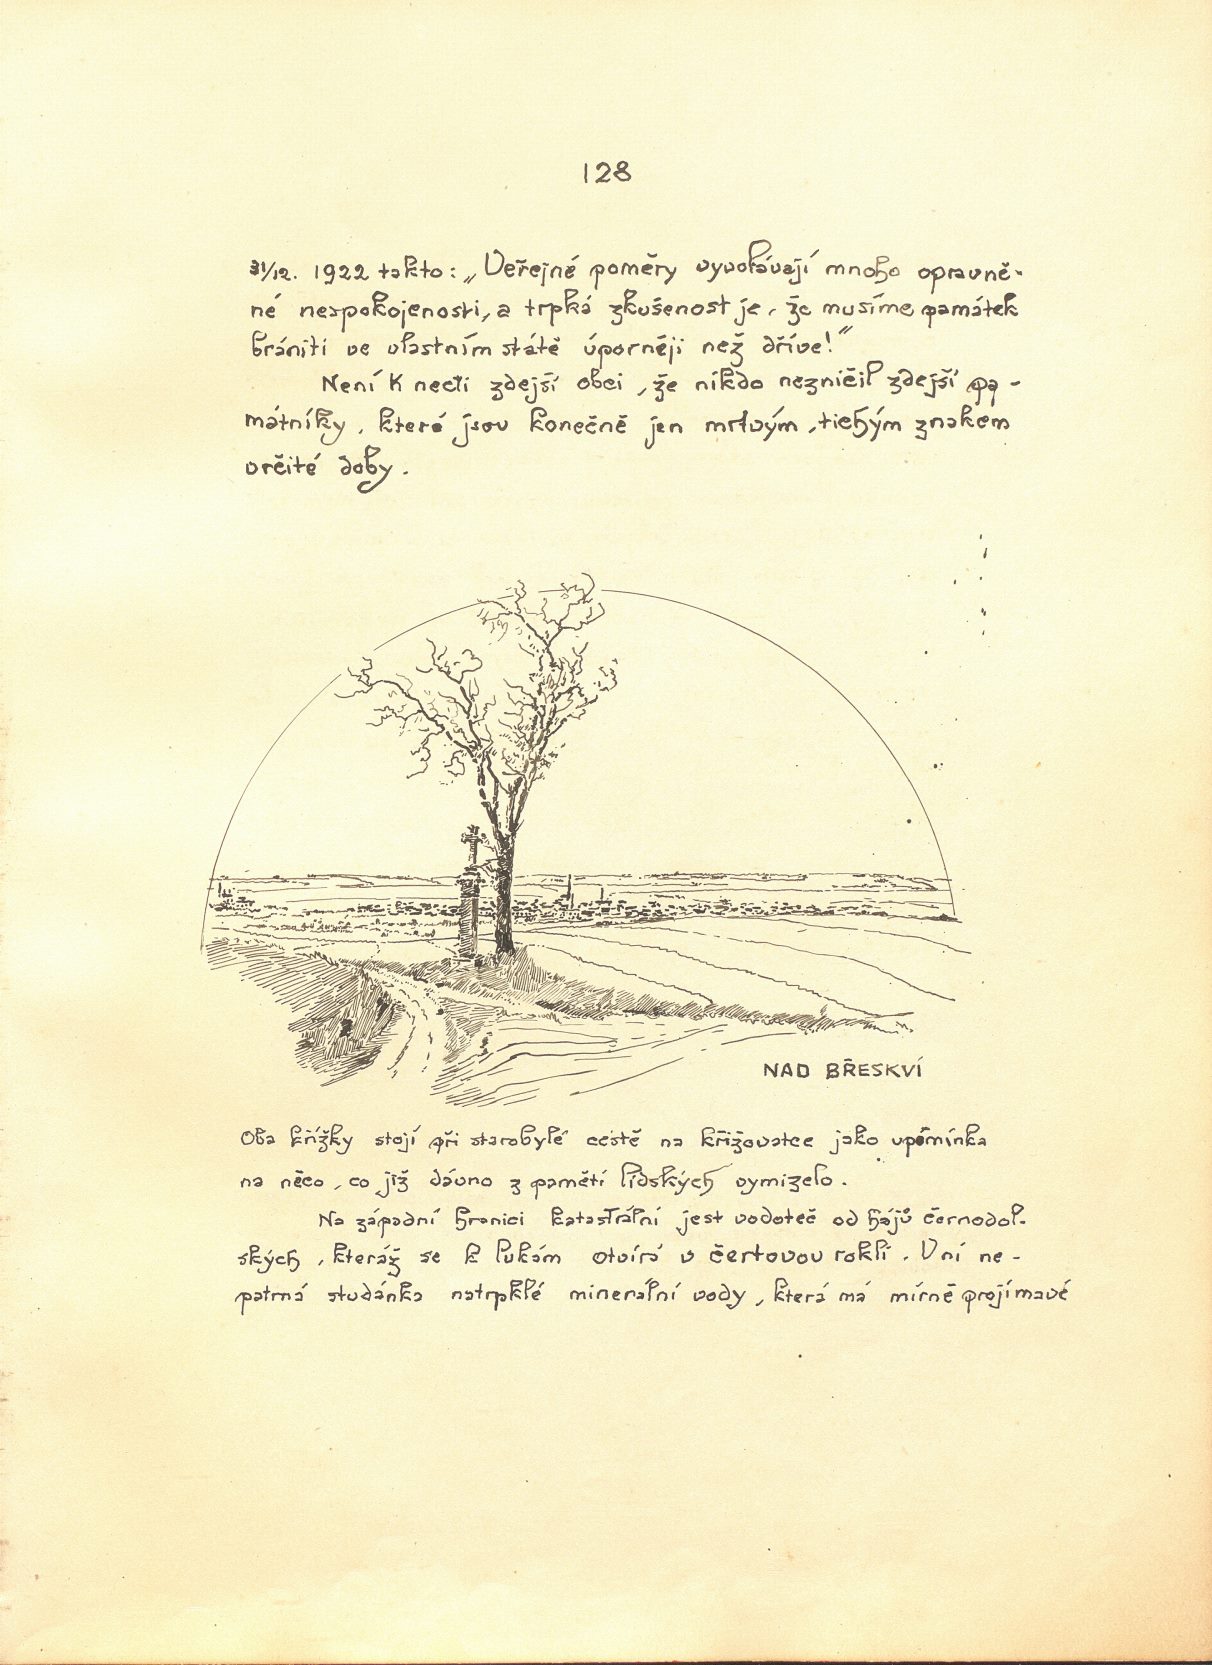 128
31/12. 1922 takto: „Veřejné poměry vyvolávají mnoho opravně-
né nespokojenosti, a trpká zkušenost je, že musíme památek
brániti ve vlastním státě úporněji než dříve!"
Není k necti zdejší obci, že nikdo nezničil zdejší pa-
mátníky, které jsou konečně jen mrtvým, tichým znakem
určité doby.
NAD BŘESKVÍ
Oba křížky stojí při starobylé cestě na křižovatce jako upomínka
na něco, co již dávno z paměti lidských vymizelo.
Na západní hranici katastrální jest vodoteč od hájů černodol-
ských, kteráž se k lukám otvírá v čertovou rokli. V ní ne-
patrná studánka natrpklé minerální vody, která má mírně projímavé